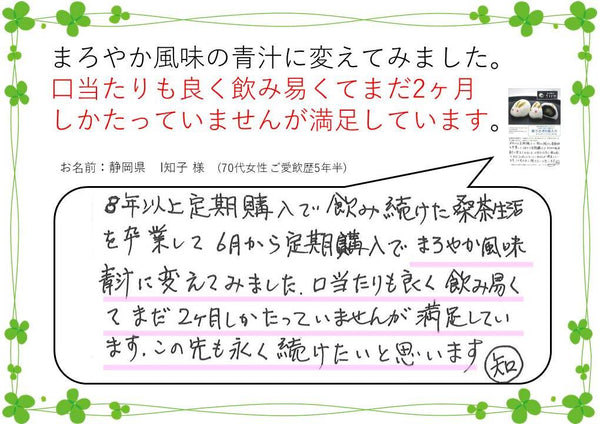 まろやか風味の青汁に変えてみました。
口当たりも良く飲み易くてまだ2ヶ月
しかたっていませんが満足しています。
お名前：静岡県　I知子 様　（70代女性 ご愛飲歴5年半）
8年以上定期購入で飲み続けた桑茶生活
を卒業して6月から定期購入でまろやか風味
青汁に変えてみました.口当たりも良く飲み易く
てまだ2ヶ月しかたっていませんが満足してい
ます.この先も永く続けたいと思います
知